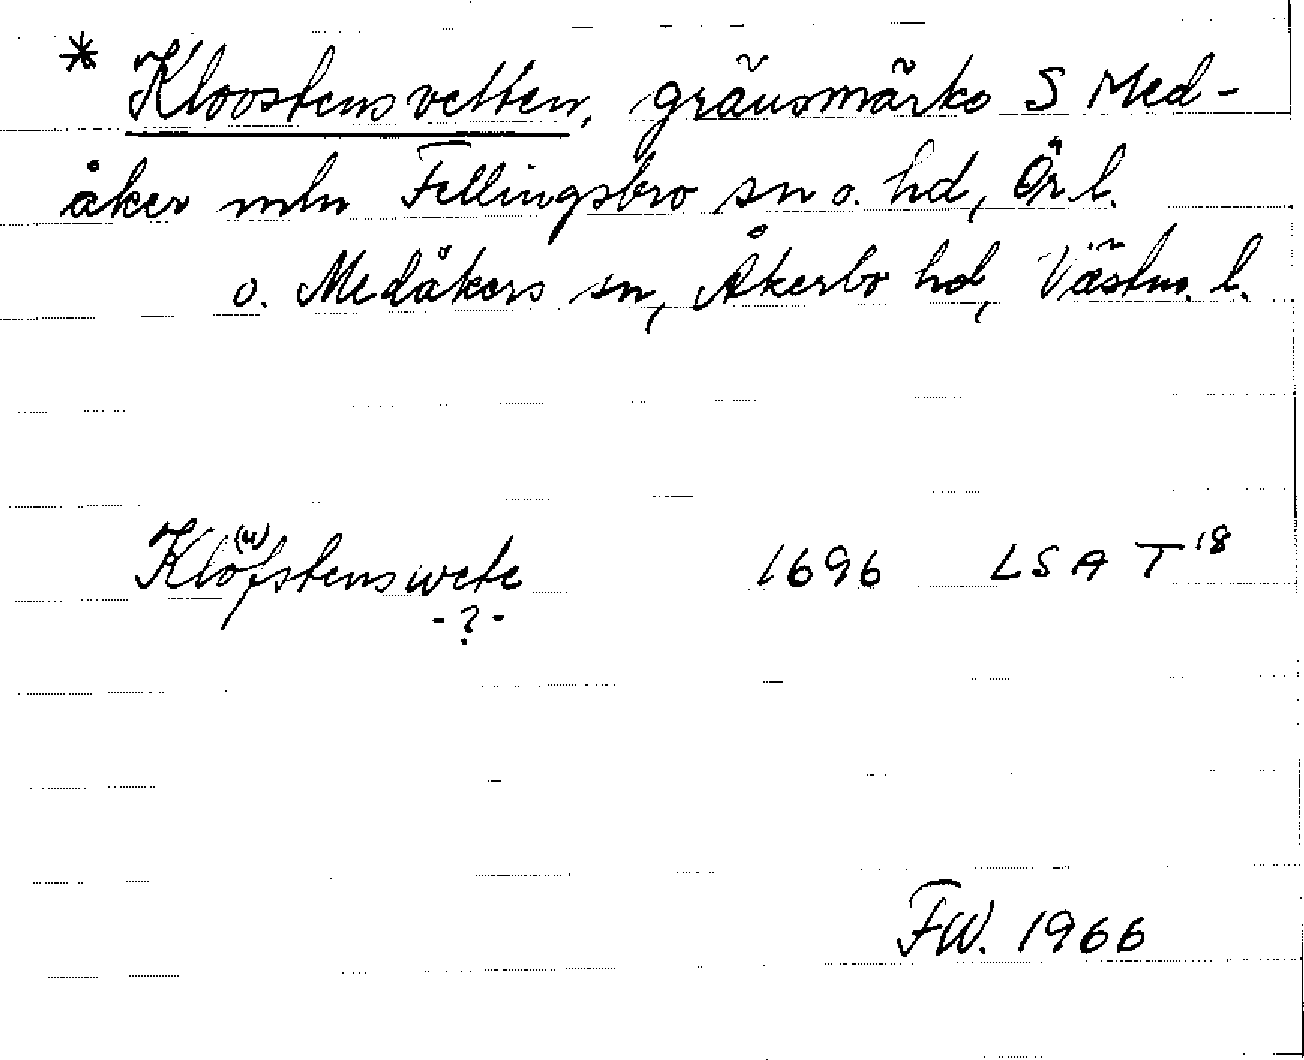 * Kloostensvetten, gränsmärke S Med-
åker mln Fellingsbro sn o. hd, Ör l.
o. Medåkers sn, Åkerbo hd, Västm. l.
Klöfstenswete 1696 LSA T 18
(u)
- ? -
FW. 1966